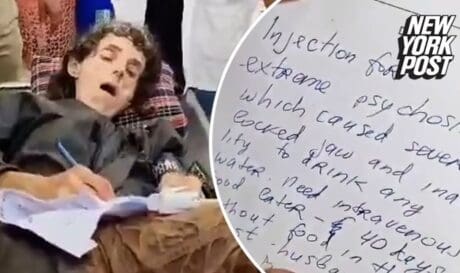 NEW
YORK
POST
Injection for
extreme psychosis
which caused sever
locked jaw and ina
lity to drink any
water. Need intravenous
ood later - 40 days
thout food in th
st husba